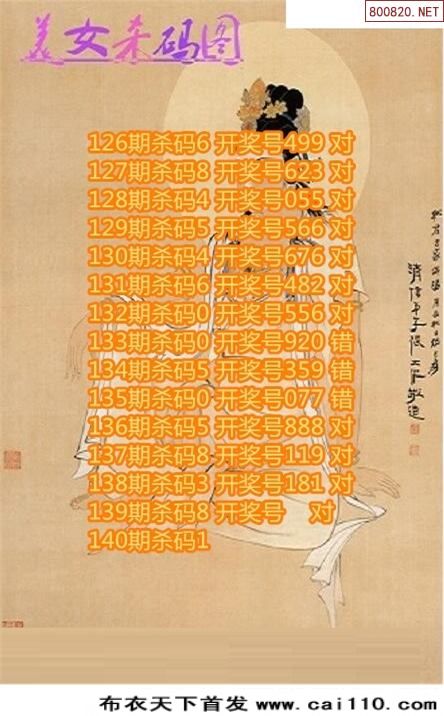 800820.NET
美女杀码图
126期杀码6 开奖号499 对
127期杀码8 开奖号623 对
128期杀码4 开奖号055 对
129期杀码5 开奖号566 对
130期杀码4 开奖号676 对
131期杀码6 开奖号482 对
132期杀码0 开奖号556 对
133期杀码0 开奖号920 错
134期杀码5 开奖号359 错
135期杀码0 开奖号077 错
136期杀码5 开奖号888 对
137期杀码8 开奖号119 对
138期杀码3 开奖号181 对
139期杀码8 开奖号 对
140期杀码1
布衣天下首发 www.cai110.com